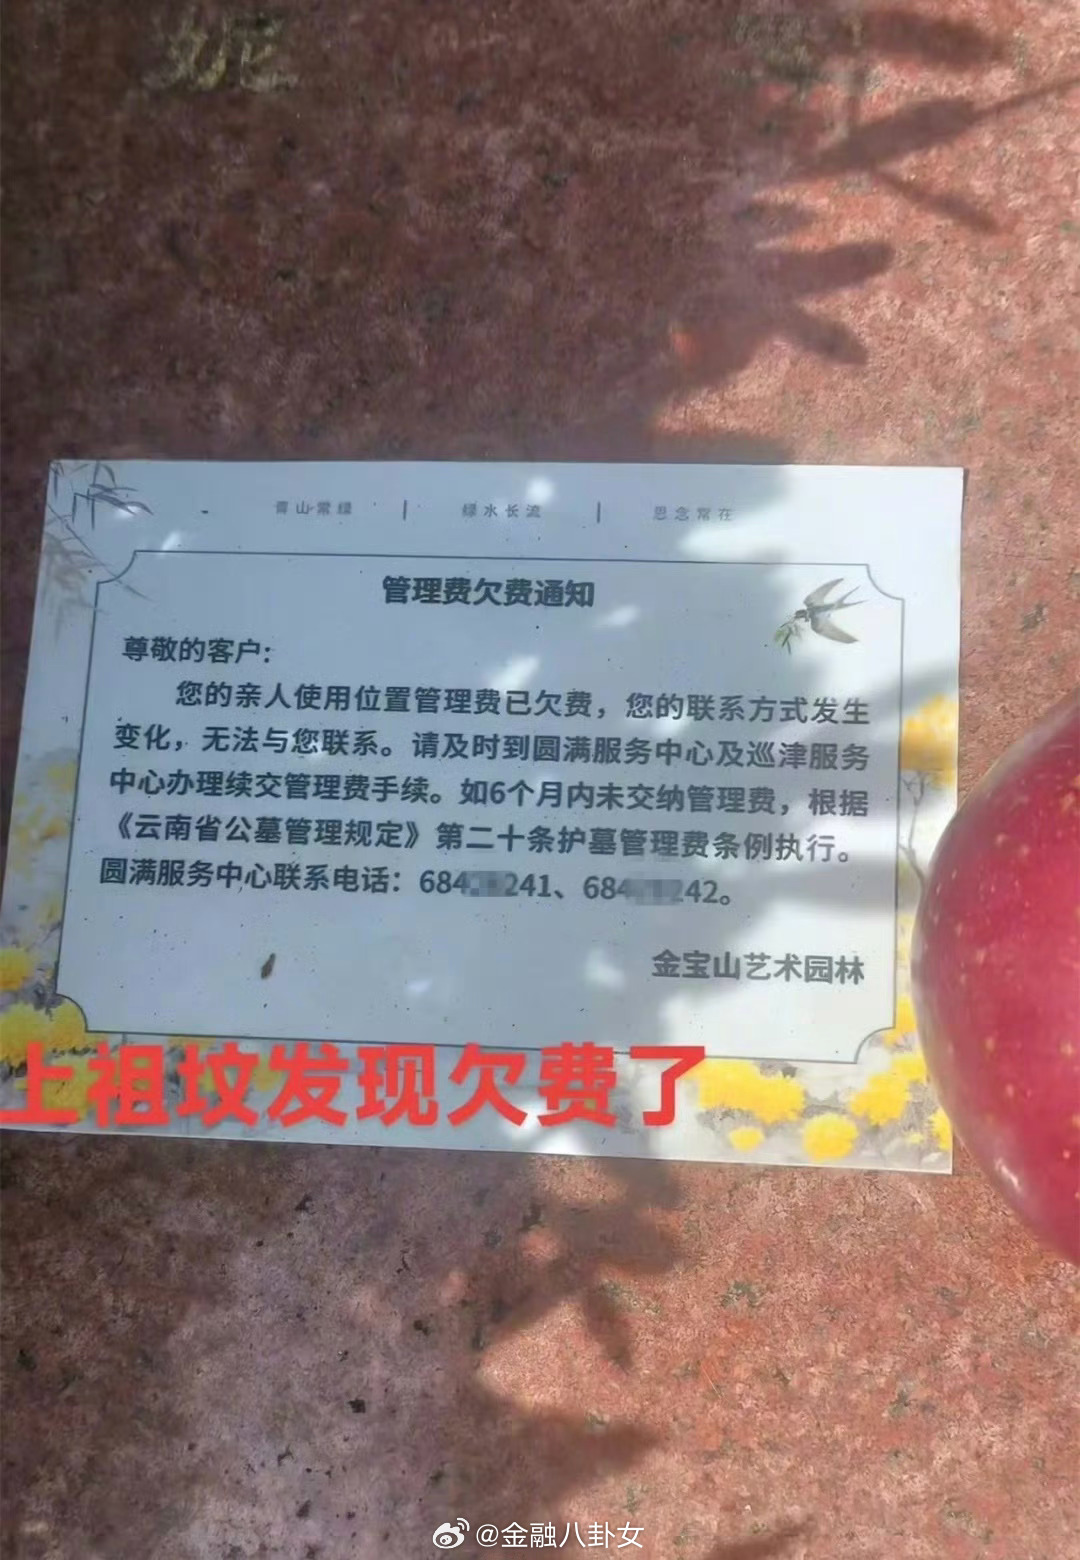 青山常绿 | 绿水长流 | 思念常在
管理费欠费通知
尊敬的客户：
您的亲人使用位置管理费已欠费，您的联系方式发生
变化，无法与您联系。请及时到圆满服务中心及巡津服务
中心办理续交管理费手续。如6个月内未交纳管理费，根据
《云南省公墓管理规定》第二十条护墓管理费条例执行。
圆满服务中心联系电话：684 241、684 242。
金宝山艺术园林
上祖坟发现欠费了
@金融八卦女